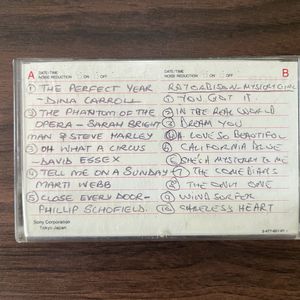 A DATE/TIME
NOISE REDUCTION ○ON ○OFF
① THE PERFECT YEAR
- DINA CARROLL
② THE PHANTOM OF THE
OPERA - SARAH BRIGHT
MAN & STEVE HARLEY
③ OH WHAT A CIRCUS
- DAVID ESSEX
④ TELL ME ON A SUNDAY
MARTI WEBB
⑤ CLOSE EVERY DOOR -
PHILLIP SCHOFIELD.
Sony Corporation
Tokyo Japan
DATE/TIME B
NOISE REDUCTION ○ON ○OFF
ROY ORBISON MYSTERY GIRL
① YOU GOT IT.
② IN THE REAL WORLD
③ DREAM YOU
④ A LOVE SO BEAUTIFUL
⑤ CALIFORNIA BLUE
⑥ SHE'S A MYSTERY TO ME
⑦ THE COMEDIANS
⑧ THE ONLY ONE
⑨ WINDSURFER
⑩ CARELESS HEART